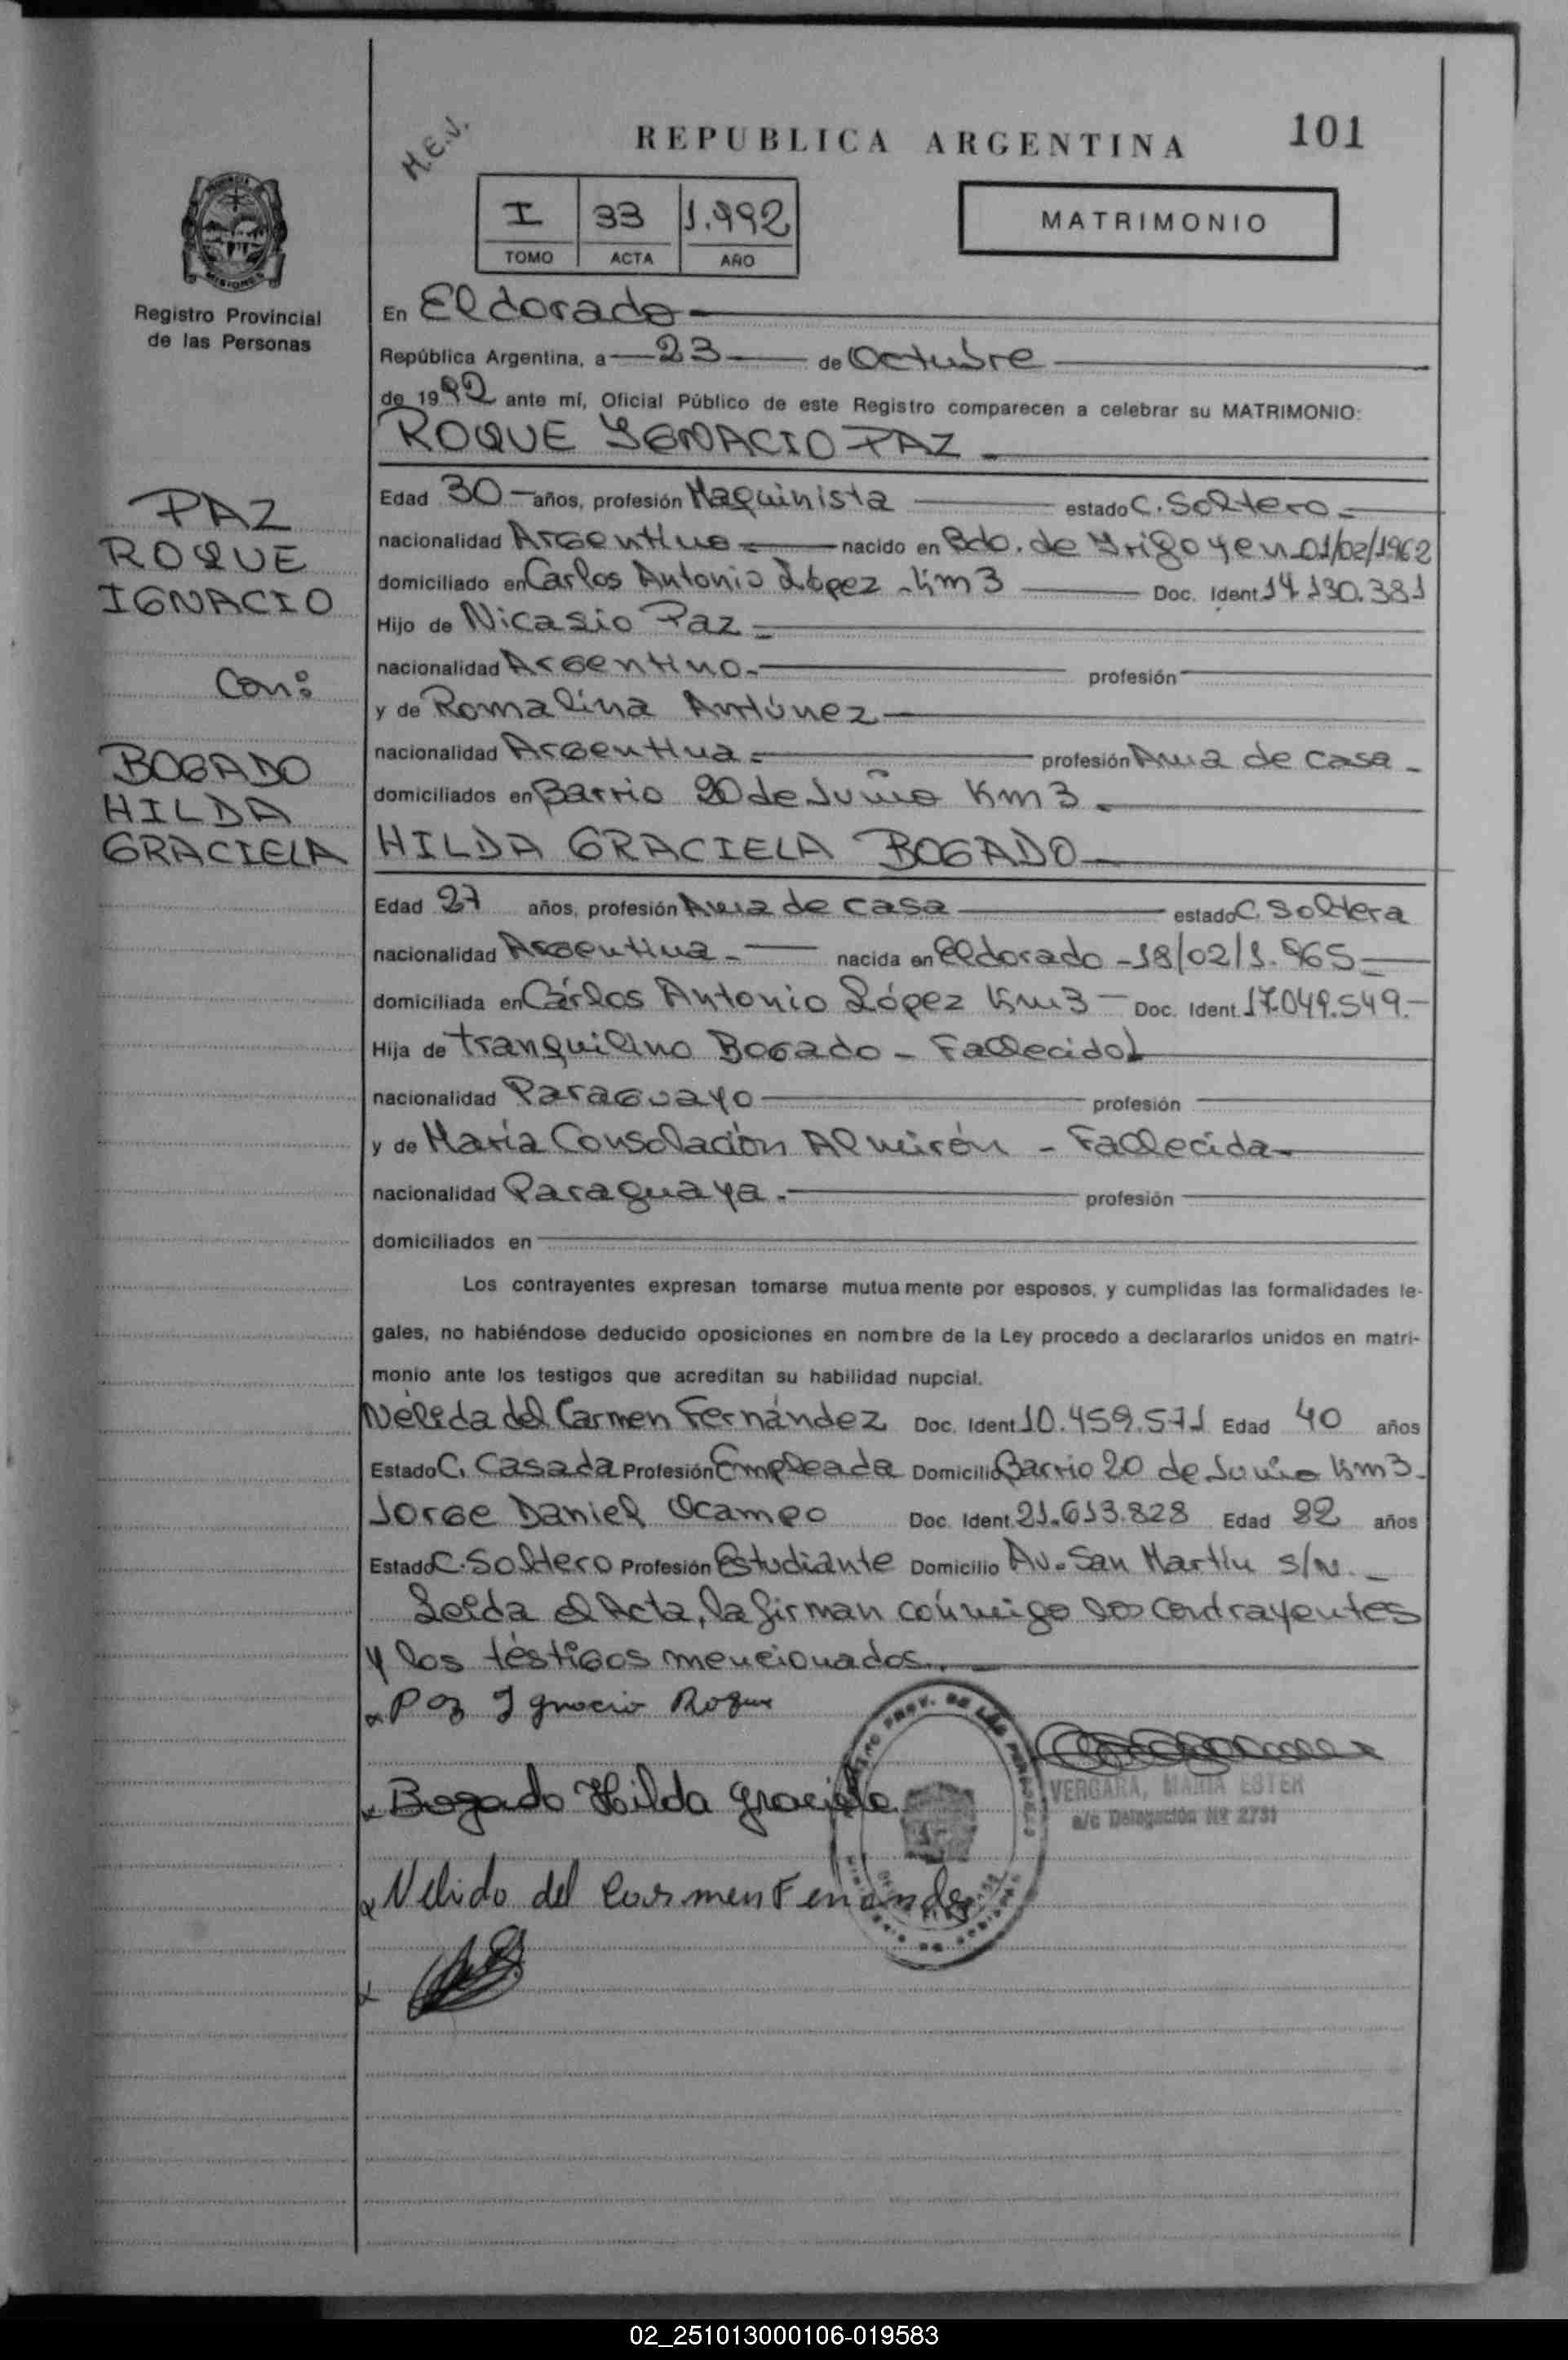 REPUBLICA ARGENTINA
101
M.E.V.
I 33 1.992
TOMO ACTA AÑO
MATRIMONIO
Registro Provincial
de las Personas
PAZ
ROQUE
IGNACIO
Con:
BOGADO
HILDA
GRACIELA
En Eldorado
República Argentina, a 23 de Octubre
de 1992 ante mí, Oficial Público de este Registro comparecen a celebrar su MATRIMONIO:
ROQUE IGNACIO PAZ
Edad 30 años, profesión Maquinista estado C. Soltero
nacionalidad Argentino nacido en Bdo. de Yrigoyen 01/02/1962
domiciliado en Carlos Antonio López - Km 3 Doc. Ident. 14.130.381
Hijo de Nicasio Paz
nacionalidad Argentino profesión
y de Romalina Antúnez
nacionalidad Argentina profesión Ama de casa
domiciliados en Barrio 20 de Junio Km 3
HILDA GRACIELA BOGADO
Edad 27 años, profesión Ama de casa estado C. Soltera
nacionalidad Argentina nacida en Eldorado - 18/02/1.965
domiciliada en Cárlos Antonio López Km 3 Doc. Ident. 17.049.549.
Hija de Tranquilino Bogado - Fallecido
nacionalidad Paraguayo profesión
y de María Consolación Almirón - Fallecida
nacionalidad Paraguaya. profesión
domiciliados en
Los contrayentes expresan tomarse mutuamente por esposos, y cumplidas las formalidades le-
gales, no habiéndose deducido oposiciones en nombre de la Ley procedo a declararlos unidos en matri-
monio ante los testigos que acreditan su habilidad nupcial.
Nélida del Carmen Fernández Doc. Ident. 10.459.571 Edad 40 años
Estado C. Casada Profesión Empleada Domicilio Barrio 20 de Junio Km 3.
Jorge Daniel Ocampo Doc. Ident. 21.613.828 Edad 22 años
Estado C. Soltero Profesión Estudiante Domicilio Av. San Martín s/n.
Leída el Acta, la firman conmigo los contrayentes
y los testigos mencionados.
x Paz Ignacio Roque
x Bogado Hilda Graciela
VERGARA, MARIA ESTER
a/c Delegación Nº 2731
x Nelida del Carmen Fernandez
x
02_251013000106-019583